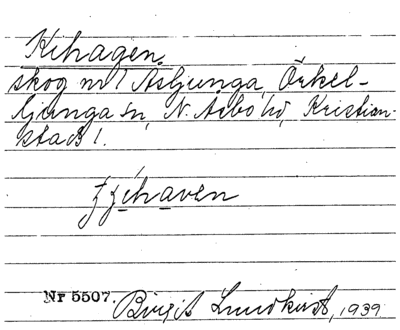 Kihagen
skog nr 1 Åsljunga, Örkel-
ljunga sn, N. Åsbo hd, Kristian-
stads l.
Nr 5507. Birgit Lundkvist, 1939